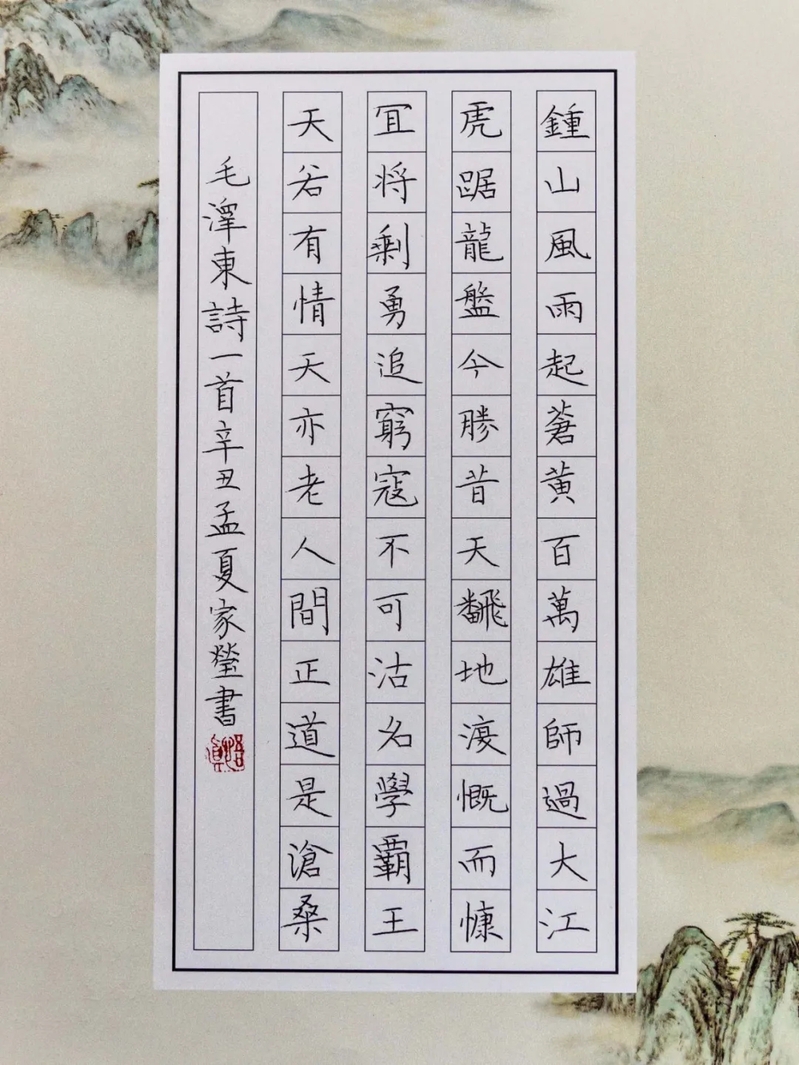 鍾山風雨起蒼黃百萬雄師過大江
虎踞龍盤今勝昔天飜地覆慨而慷
冝将剩勇追窮寇不可沽名學霸王
天若有情天亦老人間正道是滄桑
毛澤東詩一首辛丑孟夏家瑩書